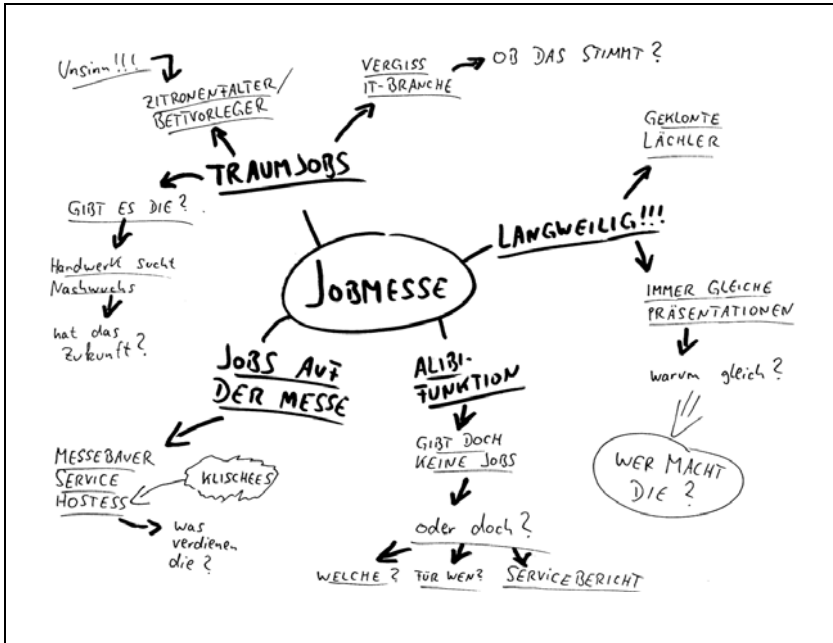 Unsinn!!!
ZITRONENFALTER/
BETTVORLEGER
VERGISS
IT-BRANCHE
OB DAS STIMMT?
TRAUMJOBS
GIBT ES DIE?
Handwerk sucht
Nachwuchs
hat das
Zukunft?
GEKLONTE
LÄCHLER
LANGWEILIG!!!
IMMER GLEICHE
PRÄSENTATIONEN
warum gleich?
WER MACHT
DIE?
JOBMESSE
JOBS AUF
DER MESSE
MESSEBAUER
SERVICE
HOSTESS
KLISCHEES
was
verdienen
die?
ALIBI-
FUNKTION
GIBT DOCH
KEINE JOBS
oder doch?
WELCHE?
FÜR WEN?
SERVICEBERICHT